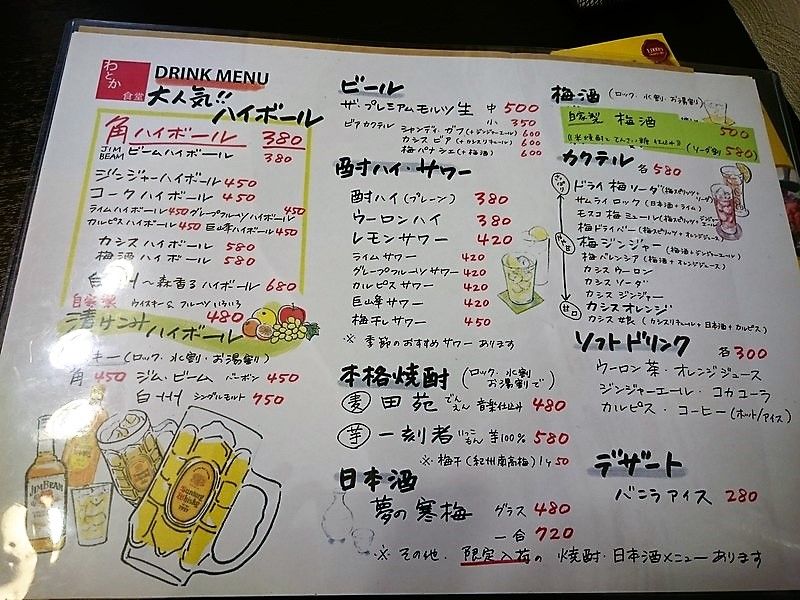 わとか
食堂
DRINK MENU
大人気!! ハイボール
角ハイボール 380
JIM BEAM ビームハイボール 380
ジンジャーハイボール 450
コークハイボール 450
ライムハイボール 450 グレープフルーツハイボール 450
カルピスハイボール 450 巨峰ハイボール 450
カシスハイボール 580
梅酒ハイボール 580
白州〜森香るハイボール 680
自家製 ウイスキー& フルーツいろいろ
漬けこみハイボール 480
キー (ロック・水割・お湯割)
角 450 ジム・ビーム バーボン 450
白州 シングルモルト 750
JIM BEAM
Suntory Whisky
ビール
ザ・プレミアムモルツ生 中 500
小 350
ビアカクテル シャンディガフ (+ジンジャーエール) 600
カシスビア (+カシスリキュール) 600
梅パナシェ (+梅酒) 600
酎ハイ・サワー
酎ハイ (プレーン) 380
ウーロンハイ 380
レモンサワー 420
ライムサワー 420
グレープフルーツサワー 420
カルピスサワー 420
巨峰サワー 420
梅干しサワー 450
※ 季節のおすすめサワーあります
本格焼酎 (ロック・水割 お湯割で)
麦 田苑 でんえん 音楽仕込み 480
芋 一刻者 いっこもん 芋100% 580
※・梅干 (紀州南高梅) 1ヶ 50
日本酒
夢の寒梅 グラス 480
一合 720
※ その他・限定入荷の 焼酎・日本酒メニューあります
梅酒 (ロック・水割・お湯割)
自家製 梅酒 500
(米焼酎とてんさい糖仕込み) (ソーダ割 580)
カクテル 各580
さっぱり
甘口
ドライ梅ソーダ (梅スピリッツ+ソーダ)
サムライロック (日本酒+ライム)
モスコ梅ミュール (梅スピリッツ+ジンジャー
梅ドライバー (梅スピリッツ+オレンジジュース)
梅ジンジャー (梅酒+ジンジャーエール)
梅バレンシア (梅酒+オレンジジュース)
カシスウーロン
カシスソーダ
カシスジンジャー
カシスオレンジ
カシス娘 (カシスリキュール+日本酒+カルピス)
ソフトドリンク 各300
ウーロン茶・オレンジジュース
ジンジャーエール・コカコーラ
カルピス・コーヒー (ホット/アイス)
デザート
バニラアイス 280